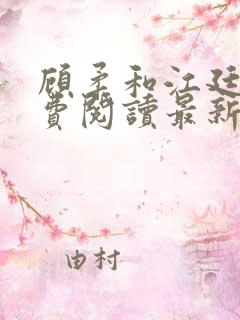 顾矛和江廷
费閱讀最新
由村